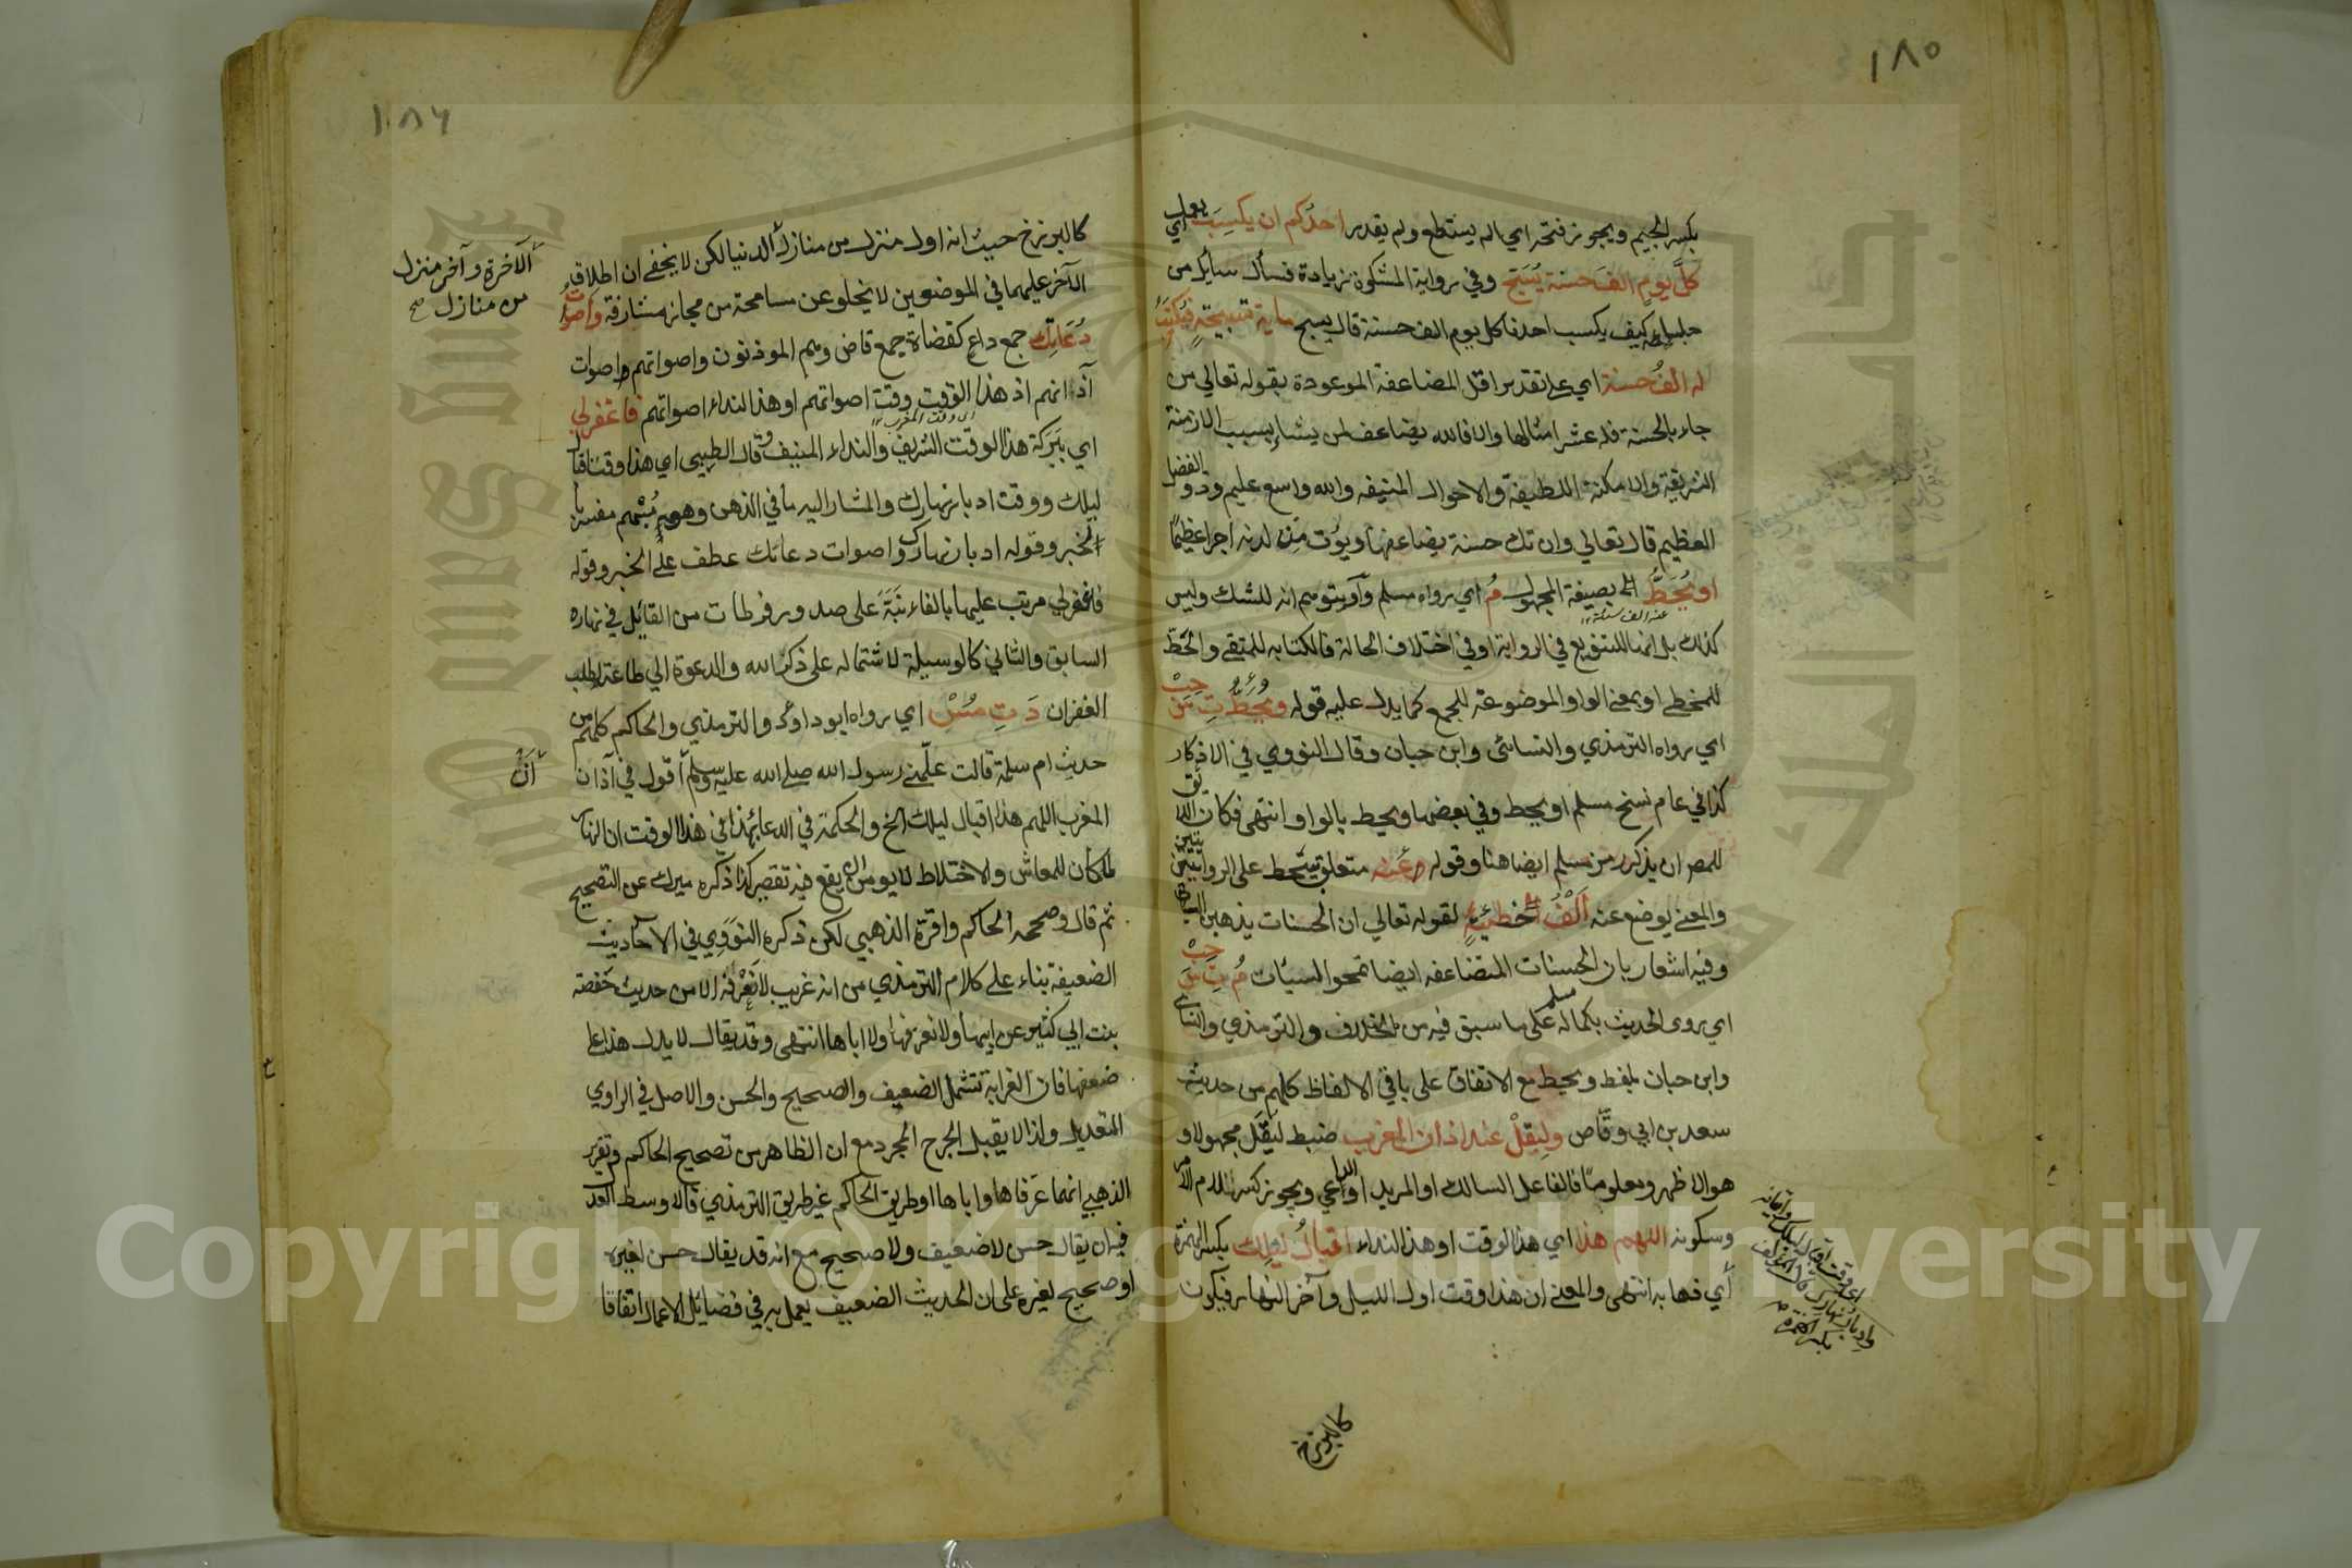 ١٨٥
بكسر الجيم ويجوز فتحه اي الم يستطع ولم يقدر احدكم ان يكسب اي
كل يوم الف حسنة يسبح وفي رواية المشكوة زيادة فسأل سايل من
جلسايه كيف يكسب احدنا كل يوم الف حسنة قال يسبح ماية تسبيحة فيكتب
له الف حسنة اي على تقدير اقل المضاعفة الموعودة بقوله تعالي من
جاء بالحسنة فله عشر امثالها والا فالله يضاعف لمن يشاء بسبب الازمنة
الشريفة والامكنة اللطيفة والاحوال المنيفه والله واسع عليم وذو الفضل
العظيم قال تعالي وان تك حسنة يضاعفها ويؤت من لدنه اجرا عظيما
او يحط الخ بصيغة المجهول م اي رواه مسلم واو يتوهم انه للشك وليس
عنه الف سيئة
كذلك بل انما للتنويع في الرواية او في اختلاف الحالة فالكتابه للمتقي والحط
للمخطي او بمعني الواو الموضوعة للجمع كما يدل عليه قوله ويحط ت س حب
اي رواه الترمذي والنسائي وابن حبان وقال النووي في الاذكار
كذا في عام نسخ مسلم او يحط وفي بعضها ويحط بالواو انتهى فكان اللائق
للمصر ان يذكر رمز مسلم ايضا هنا وقوله عنه متعلق بيحط على الروايتين
والمعني يوضع عنه الف خطيئة لقوله تعالي ان الحسنات يذهبن السيئات
وفيه اشعار بان الحسنات المتضاعفه ايضا تمحوا السيئات م ت س حب
اي روى الحديث بكماله مسلم على ما سبق فيه من الخلاف والترمذي والنسائي
وابن حبان بلفظ ويحط مع الاتفاق على باقي الالفاظ كلهم من حديث
سعد بن ابي وقاص وليقل عند اذان المغرب ضبط ليقل مجهولا و
هو الاظهر ومعلوما فالفاعل السالك او المريد او الداعي ويجوز كسر اللام الامر
وسكونه اللهم هذا اي هذا الوقت او هذا النداء اقبال ليلك بكسر الهمزة
اي فما به انتهى والمعني ان هذا وقت اول الليل وآخر النهار فيكون
بكسر الهمزة
كالبرزخ
١٨٦
كالبرزخ حيث انه اول منزل من منازل الدنيا لكن لا يخفى ان اطلاق
الآخرة وآخر منزل
من منازل صح
الآخر عليهما في الموضعين لا يخلو عن مسامحة من مجاز مشارفة واصوات
دعاتك جمع داع كقضاة جمع قاض وهم الموذنون واصواتهم اصوات
آذانهم اذ هذا الوقت وقت اصواتهم او هذا النداء اصواتهم فاغفر لي
اي وقت المغرب
اي ببركة هذا الوقت الشريف والنداء المنيف وقال الطيبي اي هذا وقت اقبال
ليلك ووقت ادبار نهارك والمشار اليه ما في الذهن وهو مبهم مفسر
الخبر وقوله ادبار نهارك واصوات دعاتك عطف على الخبر وقوله
فاغفر لي مرتب عليها بالفاء نبه على صدور فرطات من القائل في نهاره
السابق والثاني كالوسيلة لاشتماله على ذكر الله والدعوة الي طاعته لطلب
الغفران د ت مس اي رواه ابو داود والترمذي والحاكم كلهم من
حديث ام سلمة قالت علمني رسول الله صلى الله عليه وسلم أقول في آذان
أن
المغرب اللهم هذا اقبال ليلك الخ والحكمة في الدعا بهذا في هذا الوقت ان النهار
لما كان للمعاش والاختلاط لا يومن ان يقع فيه تقصير كذا ذكره ميرك عن التصحيح
ثم قال وصححه الحاكم واقره الذهبي لكن ذكره النووي في الاحاديث
الضعيفة بناء على كلام الترمذي من انه غريب لا نعرفه الا من حديث حفصة
بنت ابي كثير عن ابيها ولا نعرفها ولا اباها انتهى وقد يقال لا يدل هذا على
ضعفها فان الغرابة تشمل الضعيف والصحيح والحسن والاصل في الراوي
التعديل ولذا لا يقبل الجرح المجرد مع ان الظاهر من تصحيح الحاكم وتقرير
الذهبي انهما عرفاها واباها او طريق الحاكم غير طريق الترمذي فالاوسط العدل
فيه ان يقال حسن لا ضعيف ولا صحيح مع انه قد يقال حسن لغيره
او صحيح لغيره على ان الحديث الضعيف يعمل به في فضائل الاعمال اتفاقا
Copyright © King Saud University